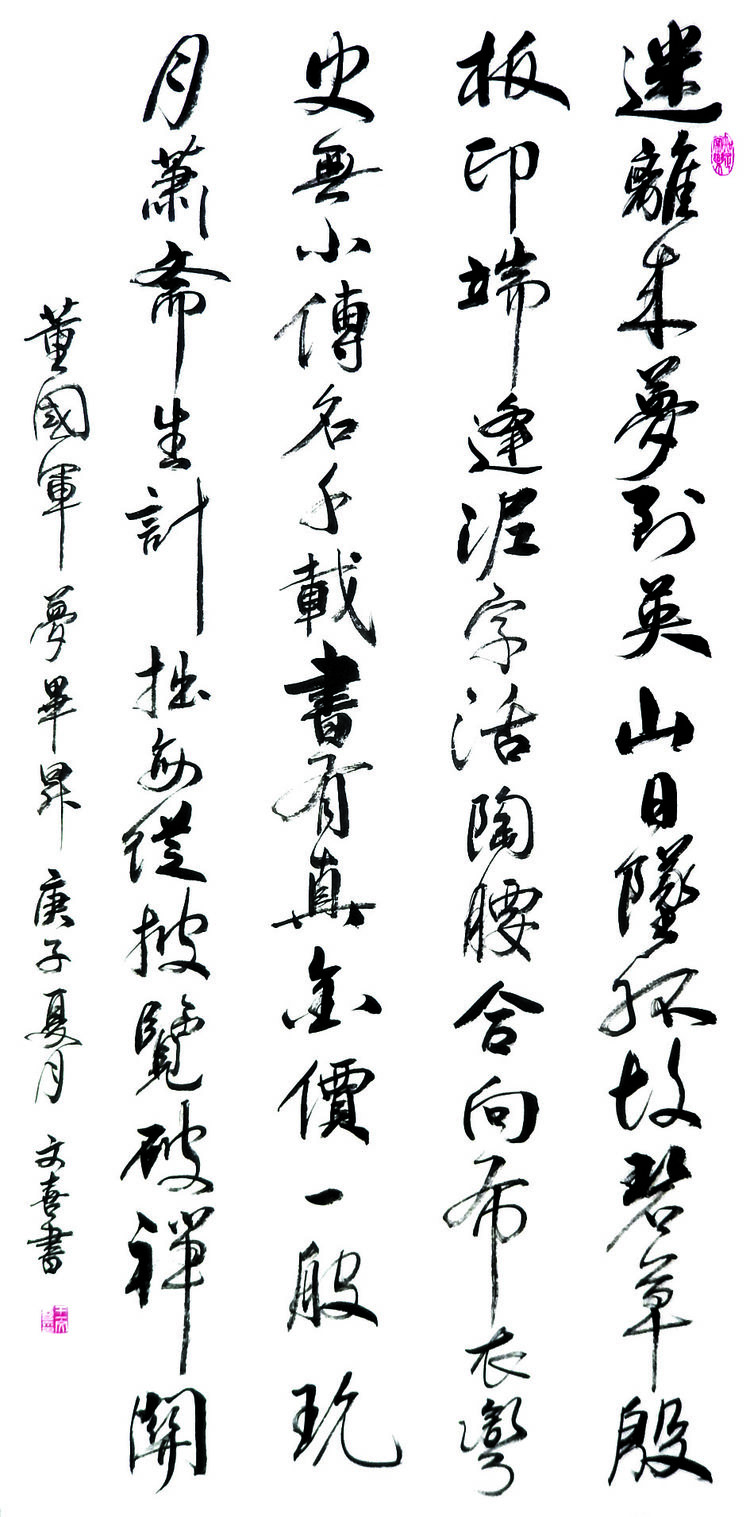 迷離来夢到英山日墜孤坟碧草殷
板印端逢泥字活陶腰合向布衣彎
史無小傳名千載書有真金價一般玩
月蕭斋生計拙每從披覽破禪關
董國軍夢畢昇庚子夏月文喜書